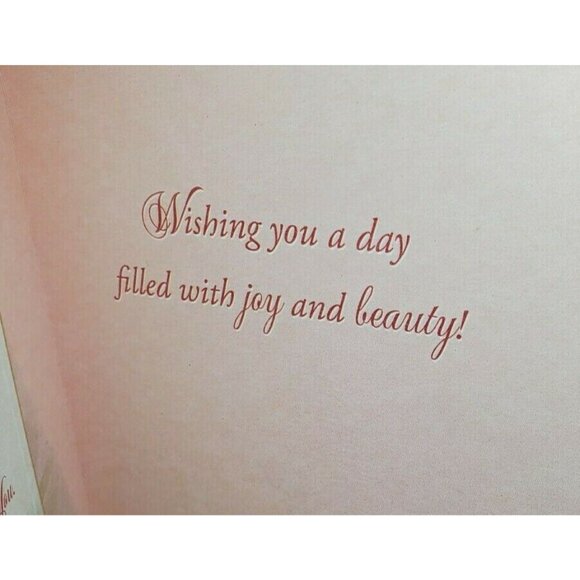 Wishing you a day
filled with joy and beauty!